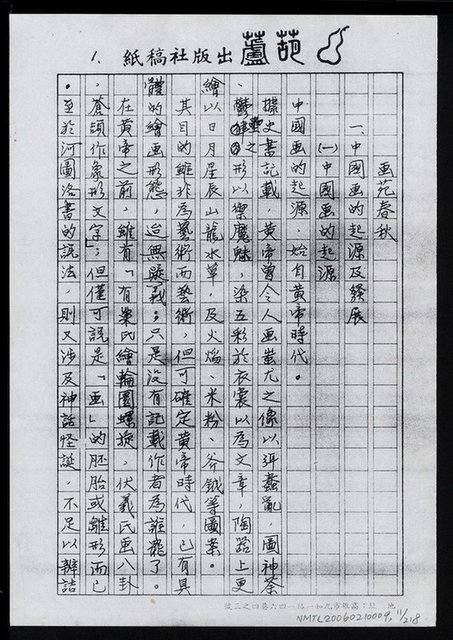 葫蘆出版社稿紙
1.
画苑春秋
一、中國画的起源及發展
(一)中國画的起源
中國画的起源,始自黃帝時代。
據史書記載,黃帝曾令人画蚩尤之像以弭蠢亂,圖神荼
、鬱壘之形以禦魔魅,染五彩於衣裳以為文章,陶器上更
繪以日月星辰山龍水草,及火焰、米粉、斧鉞等圖案。
其目的雖非為藝術而藝術,但可確定黃帝時代,已有具
體的繪画形態,迨無疑義;只是沒有記載作者為誰罷了。
在黃帝之前,雖有「有巢氏繪輪圜螺旋,伏羲氏画八卦
,蒼頡作象形文字」;但僅可說是「画」的胚胎或雛形而已
。至於河圖洛書的說法,則又涉及神話怪誕,不足以辯詰
NMTL20060210009, 11/218